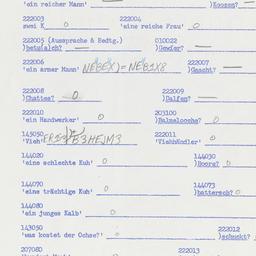 'ein reicher Mann' )Koozen?
222003 222004
zwei K O 'eine reiche Frau' O
222005 (Aussprache & Bedtg.) 010022
)betu(a)ch? )Gewier?
222006 222007
'ein armer Mann' NEBEX)=NEB1X8 )Gascht?
222008 222009
)Chatise? O )Dalfen?
222010 203100
'ein Handwerker' O )Balmeloochs? O
145050 222011
'Vieh' B3HEJM3 'Viehhändler' O
144020 144030
'eine schlechte Kuh' O )Boors? O
144070 144073
'eine trächtige Kuh' O )battersch? O
144080
'ein junges Kalb' O
143050 222012
'was kostet der Ochse?' )schuckt?
207080 222013